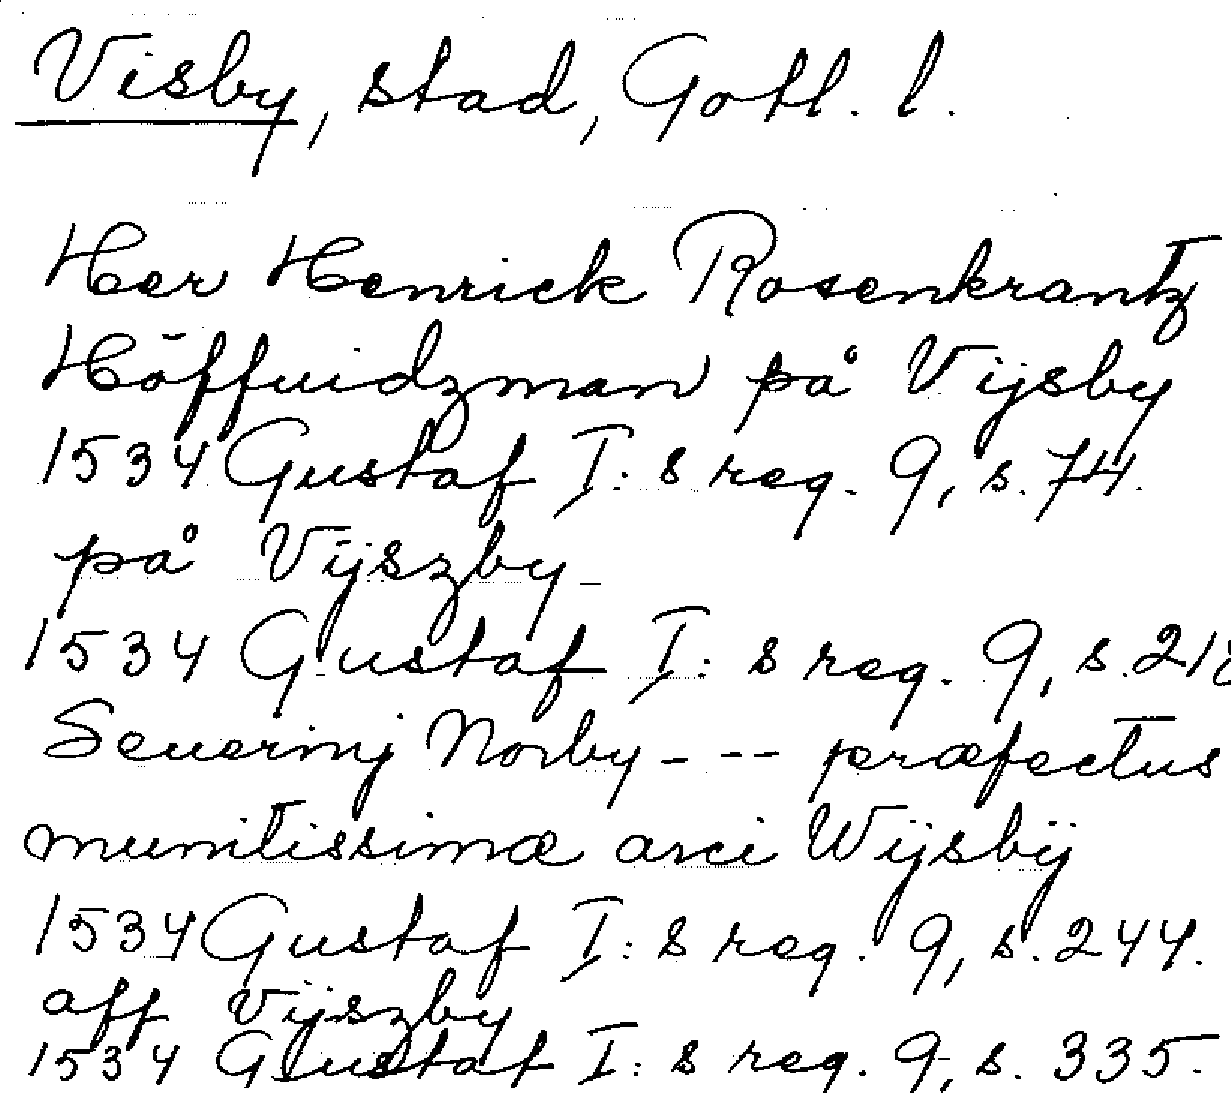 Visby, stad, Gotl. l.
Her Henrick Rosenkrantz
Höffuidzman på Vijsby
1534 Gustaf I:s reg. 9, s. 74.
på Vijszby-
1534 Gustaf I:s reg. 9, s.
Seuerinj Norby - -- præfectus
munitissimæ arci Wÿsbÿ
1534 Gustaf I:s reg. 9, s. 244.
aff Vijszby
1534 Gustaf I:s reg. 9, s. 335.